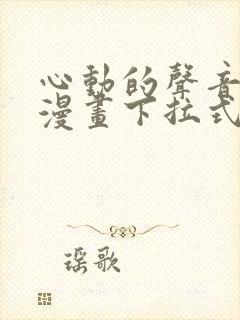 心動的聲音
漫畫下拉式
瑶歌